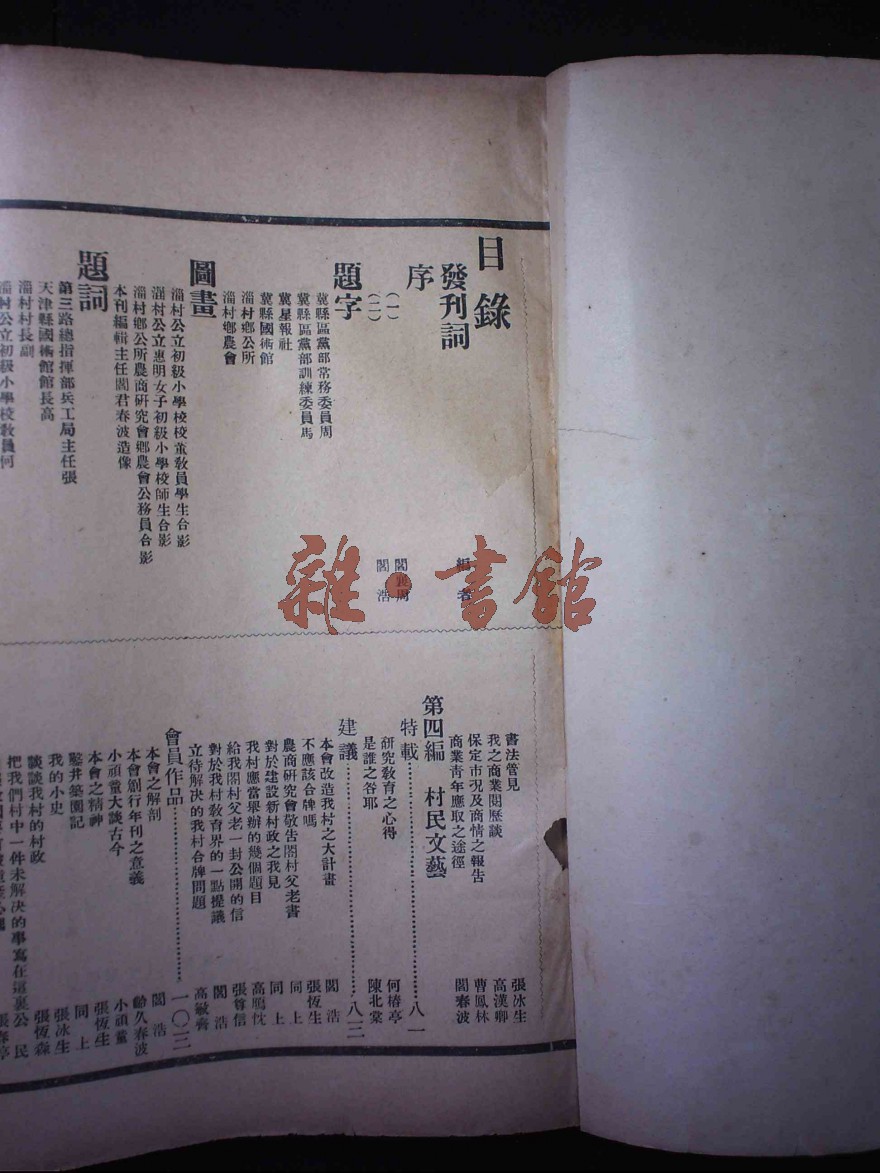 目錄
發刊詞 編者
序
(一) 閻襄周
(二) 閻浩
題字
冀縣區黨部常務委員周
冀縣區黨部訓練委員馬
冀星報社
冀縣國術館
淄村鄉公所
淄村鄉農會
圖畫
淄村公立初級小學校校董教員學生合影
淄村公立惠明女子初級小學校師生合影
淄村鄉公所農商研究會鄉農會公務員合影
本刊編輯主任閻君春波造像
題詞
第三路總指揮部兵工局主任張
天津縣國術館館長高
淄村村長副
淄村公立初級小學校教員何
書法管見 張冰生
我之商業閱歷談 高漢卿
保定市况及商情之報告 曹鳳林
商業青年應取之途徑 閻春波
第四編 村民文藝
特載 八一
研究教育之心得 何椿亭
是誰之咎耶 陳北棠
建議 八三
本會改造我村之大計畫 閻浩
不應該合牌嗎 張恆生
農商研究會敬告閤村父老書 同上
對於建設新村政之我見 同上
我村應當舉辦的幾個題目 高鵬忱
給我閤村父老一封公開的信 張尊信
對於我村教育界的一點提議 閻浩
立待解決的我村合牌問題 高毓齊
會員作品 一〇三
本會之解剖 閻浩
本會刱行年刊之意義 齡久春波
小頑童大談古今 小頑童
本會之精神 張恆生
鑿井築園記 同上
我的小史 張冰生
談談我村的村政 張恆森
把我們村中一件未解決的事寫在這裏 公民
張春亭
雜·書館